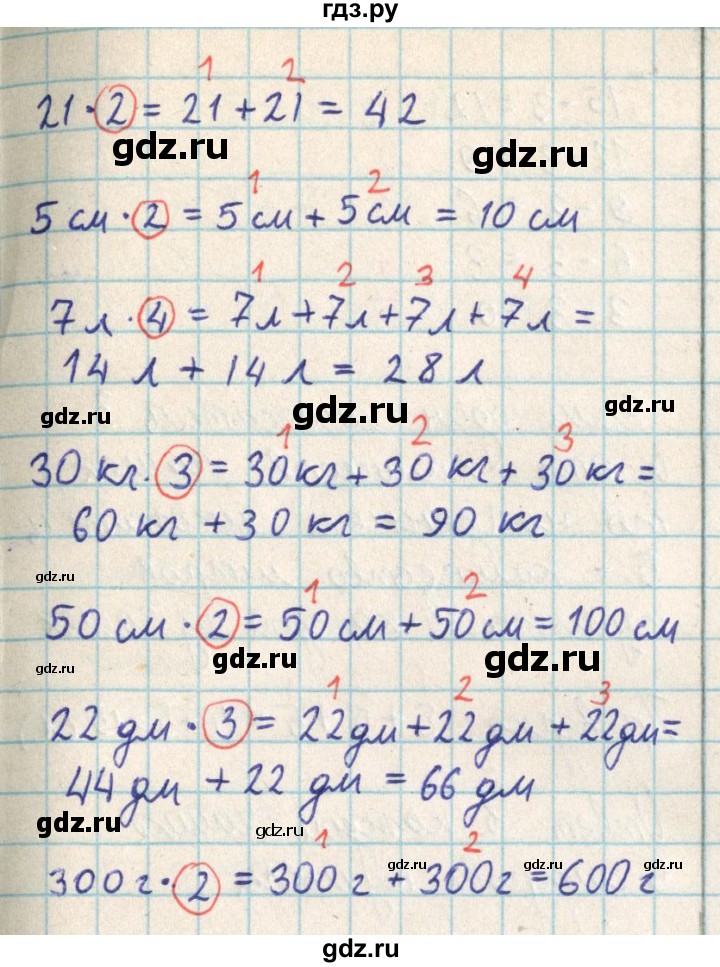 гдз.ру
1 2
21 · 2 = 21 + 21 = 42
gdz.ru gdz.ru
1 2
5 см · 2 = 5 см + 5 см = 10 см
1 2 3 4
7 л · 4 = 7л + 7л + 7л + 7л =
14 л + 14 л = 28 л
gdz.ru gdz.ru gdz.ru
1 2 3
30 кг · 3 = 30 кг + 30 кг + 30 кг =
60 кг + 30 кг = 90 кг
gdz.ru
1 2
50 см · 2 = 50 см + 50 см = 100 см
gdz.ru gdz.ru gdz.ru
1 2 3
22 дм · 3 = 22 дм + 22 дм + 22 дм =
44 дм + 22 дм = 66 дм
gdz.ru gdz.ru
1 2
300 г · 2 = 300 г + 300 г = 600 г
gdz.ru gdz.ru gdz.ru
gdz.ru